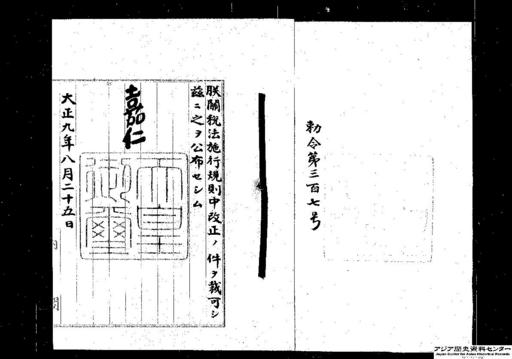 勅令第三百七号
朕關税法施行規則中改正ノ件ヲ裁可シ
茲ニ之ヲ公布セシム
嘉仁
大正九年八月二十五日
内
閣
アジア歴史資料センター
Japan Center for Asian Historical Records